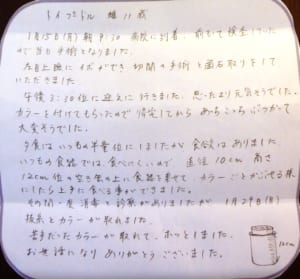 トイプードル 雄 11歳
1月15日(月) 朝9:30 病院に到着、前もって検査していた
ので当日手術となりました。
左目上瞼にイボができ 切開の手術と歯石取りをして
いただきました。
午後3:30位に迎えに行きました。思ったより元気そうでした。
カラーを付けてもらいたので 帰宅してから あちこちぶつかって
大変そうでした。
夕食はいつもの半量位にしましたが 食欲はありました。
いつもの食器では、食べにくいので、直径10cm 高さ
12cm位の空き壁の上に食器を乗せて、カラーごとが
にしたら上手に食べる事ができました。
その間一度消毒と診察がありましたが 1月29日(月)
抜糸とカラーが取れました。
苦手だったカラーが取れて、ホッとしました。
お世話になり ありがとうございました。
12cm